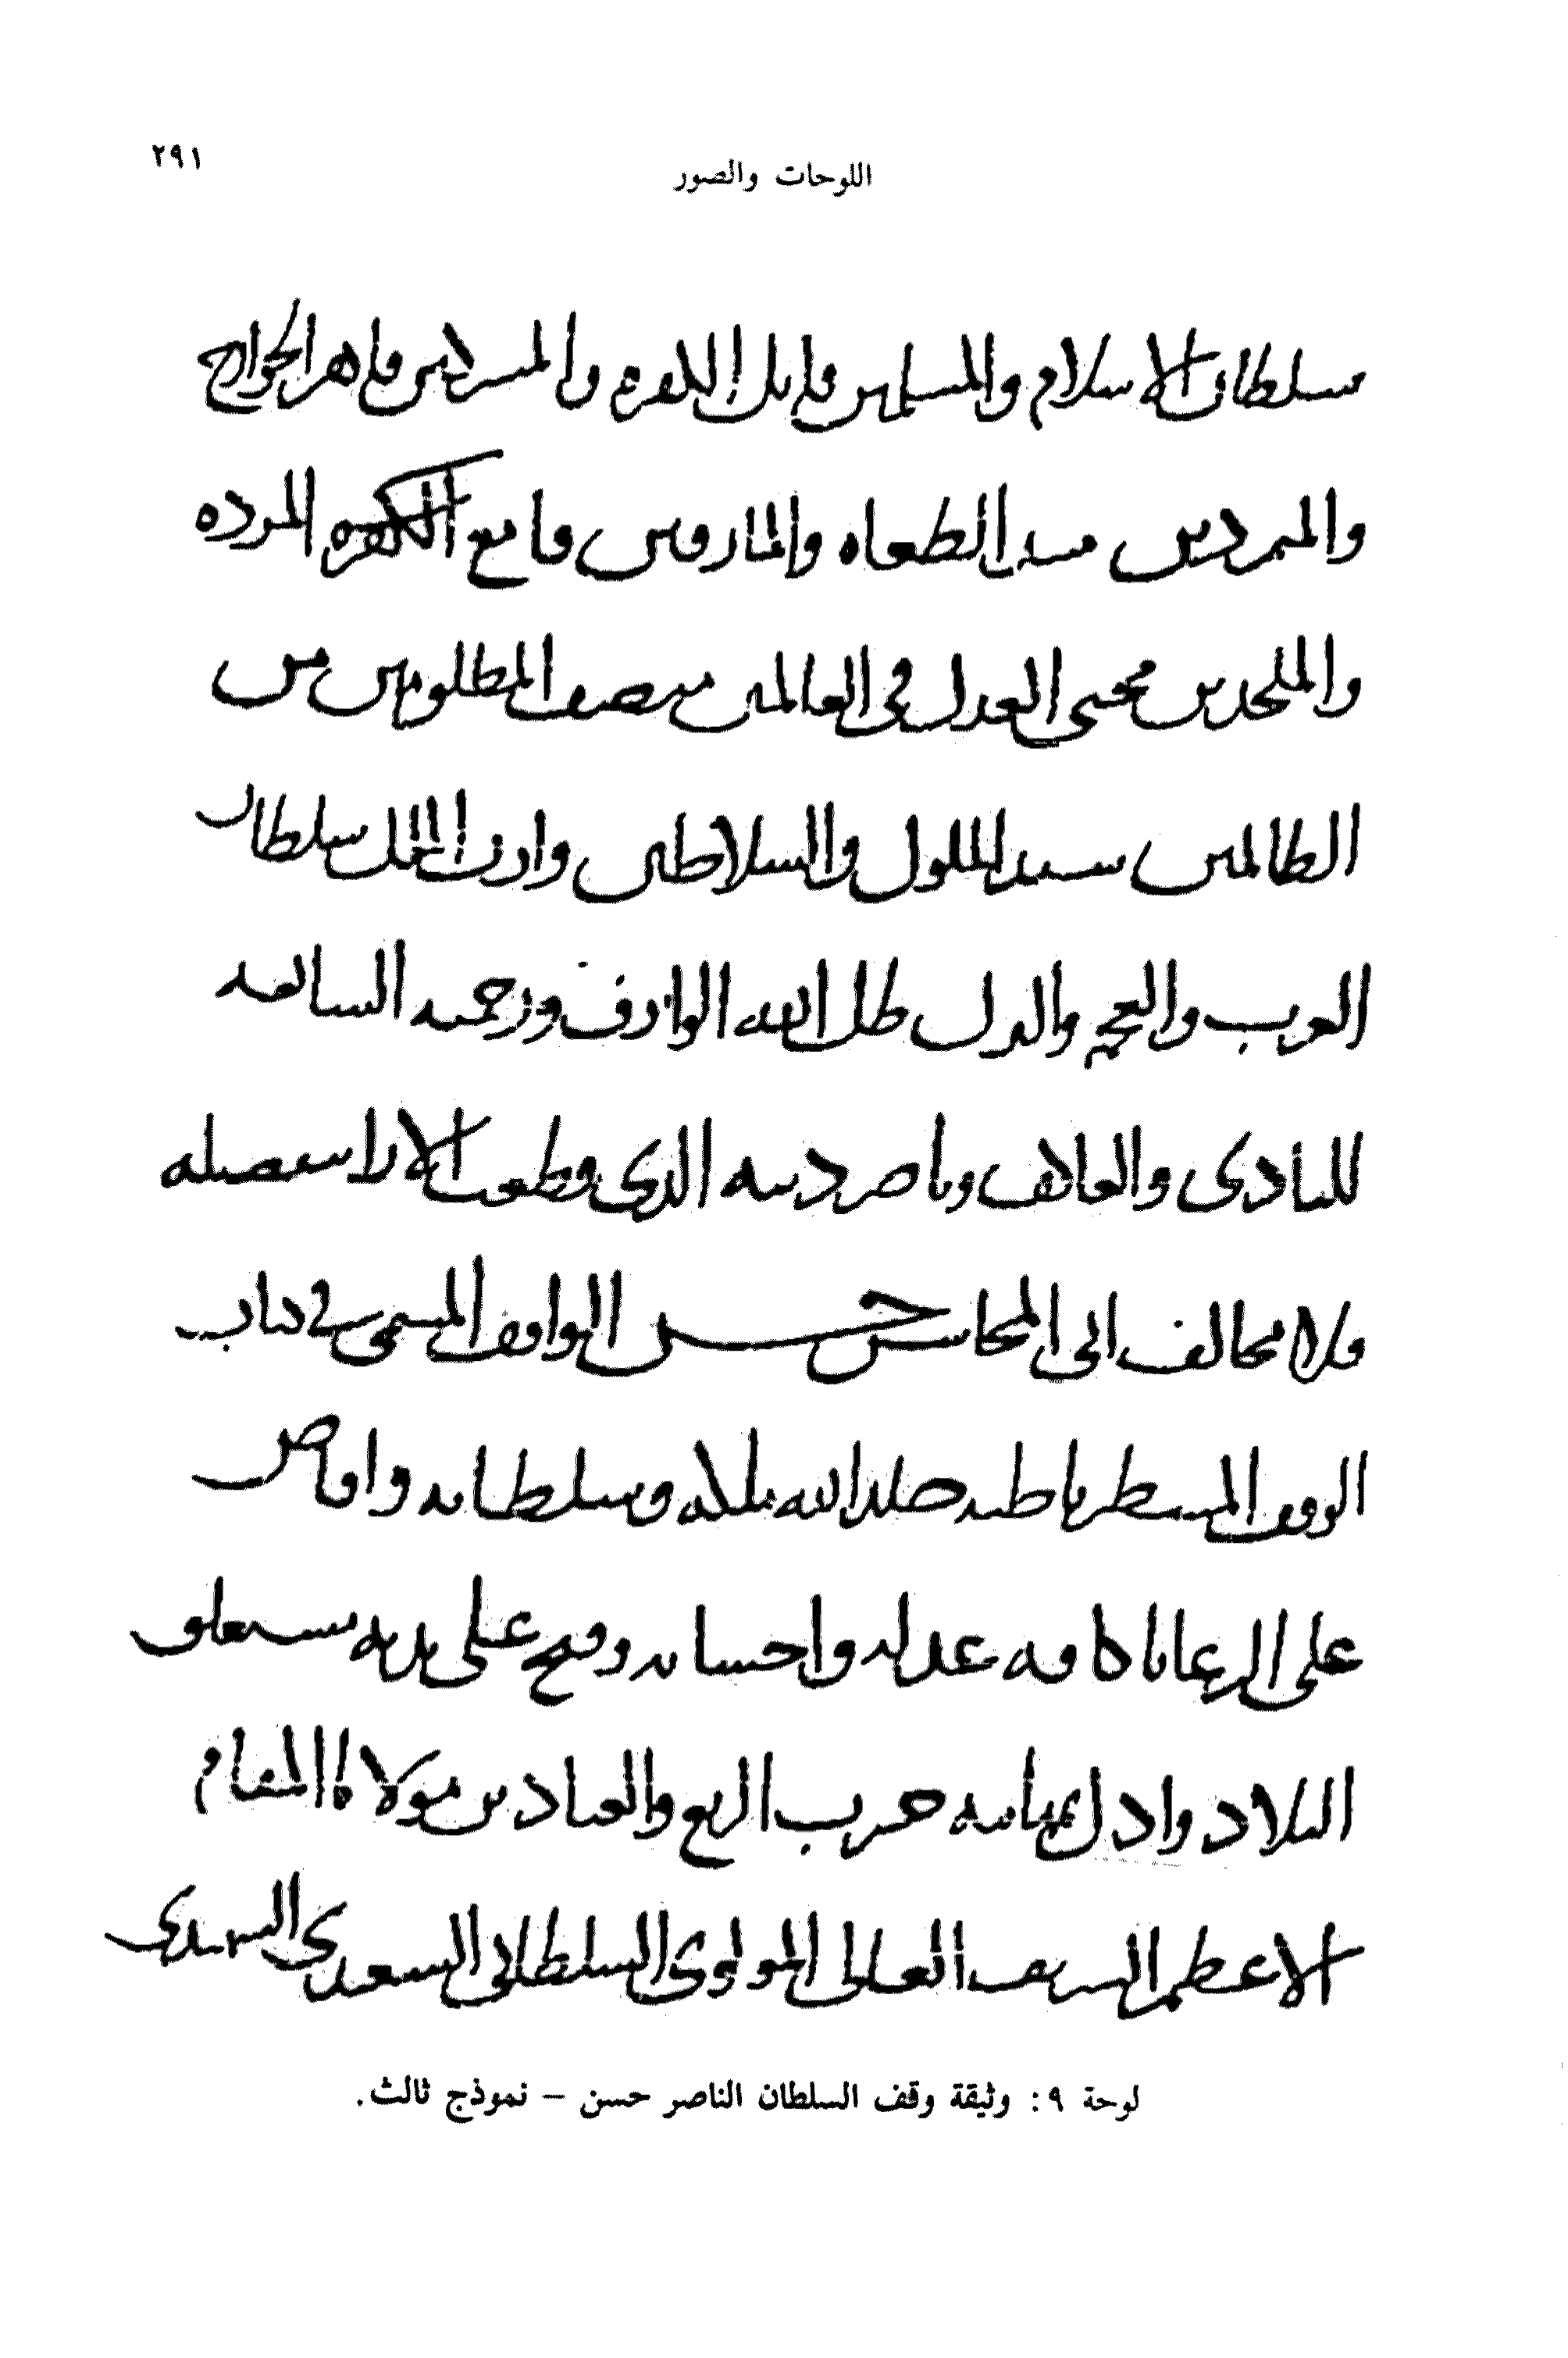 ٢٩١
اللوحات والصور
سلطان الاسلام والمسلمين قاتل الكفره والمشركين قاهر الخوارج
والمتمردين مبيد الطغاه والمارقين قامع الكفره المرده
والملحدين محيى العدل فى العالمين منصف المظلومين من
الظالمين سيد الملوك والسلاطين وارث الملك سلطان
العرب والعجم والترك ظل الله الوارف ورحمته السابغه
للبادى والعاكف وناصر دينه الذى قطعت الارا بتفضيله
فلا مخالف ابى المحاسن حسن الواقف المسمى فى كتاب
الوقف المسطر باطنه خلد الله ملكه وسلطانه وافاض
على الرعايا كافه عدله واحسانه وفتح على يديه مستغلق
البلاد واذل بمهابته حزب الزيغ والعناد بن مولانا المقام
الاعظم الشريف العالى المولوى السلطانى السعيدى الشهيدى
لوحة ٩: وثيقة وقف السلطان الناصر حسن – نموذج ثالث.